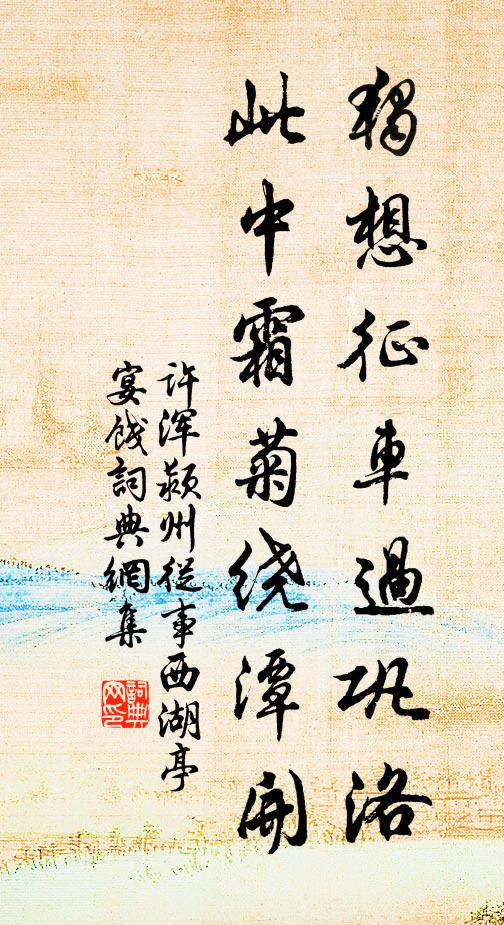 獨想征車過巩洛
此中霜菊绕潭開
许浑颍州從事西湖亭
宴饯詞典網集
詞典
网印